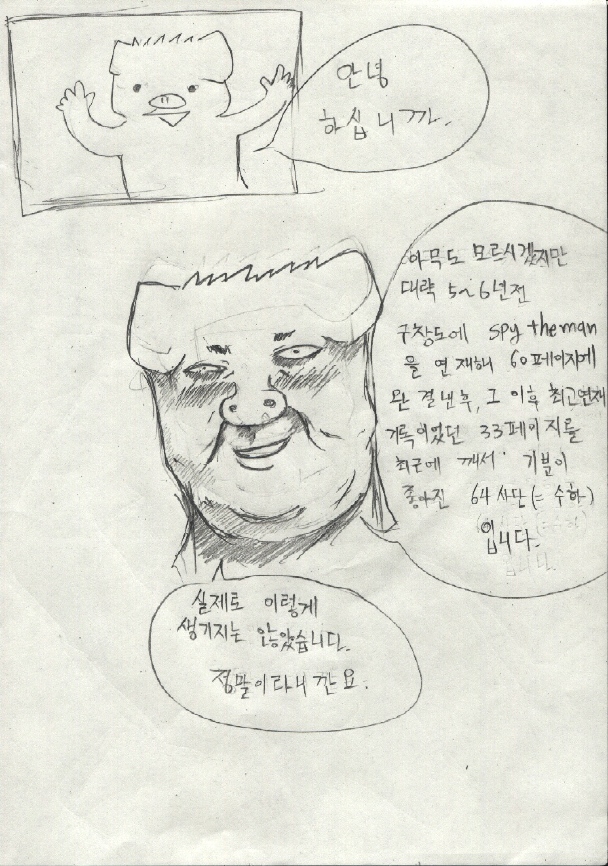 안녕
하십니까.
아무도 모르시겠지만
대략 5~6년전
구창도에 spy the man
을 연재해 60페이지에
완결낸후, 그 이후 최고연재
기록이었던 33페이지를
최근에 깨서 기분이
좋아진 64사단(=수하)
입니다.
실제로 이렇게
생기지는 않았습니다.
정말이라니깐요.